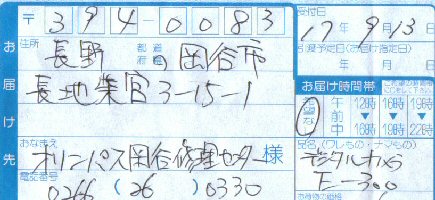 〒394-0083
受付日
17年9月13日
お届け先
住所
長野 都道府県 岡谷市
長地柴宮3-15-1
おなまえ
オリンパス岡谷修理センター様
電話番号
0266(26)0330
お届け時間帯
午前中
12時 16時 19時
16時 19時 22時
品名(ワレもの・ナマもの)
デジタルカメラ
E-300